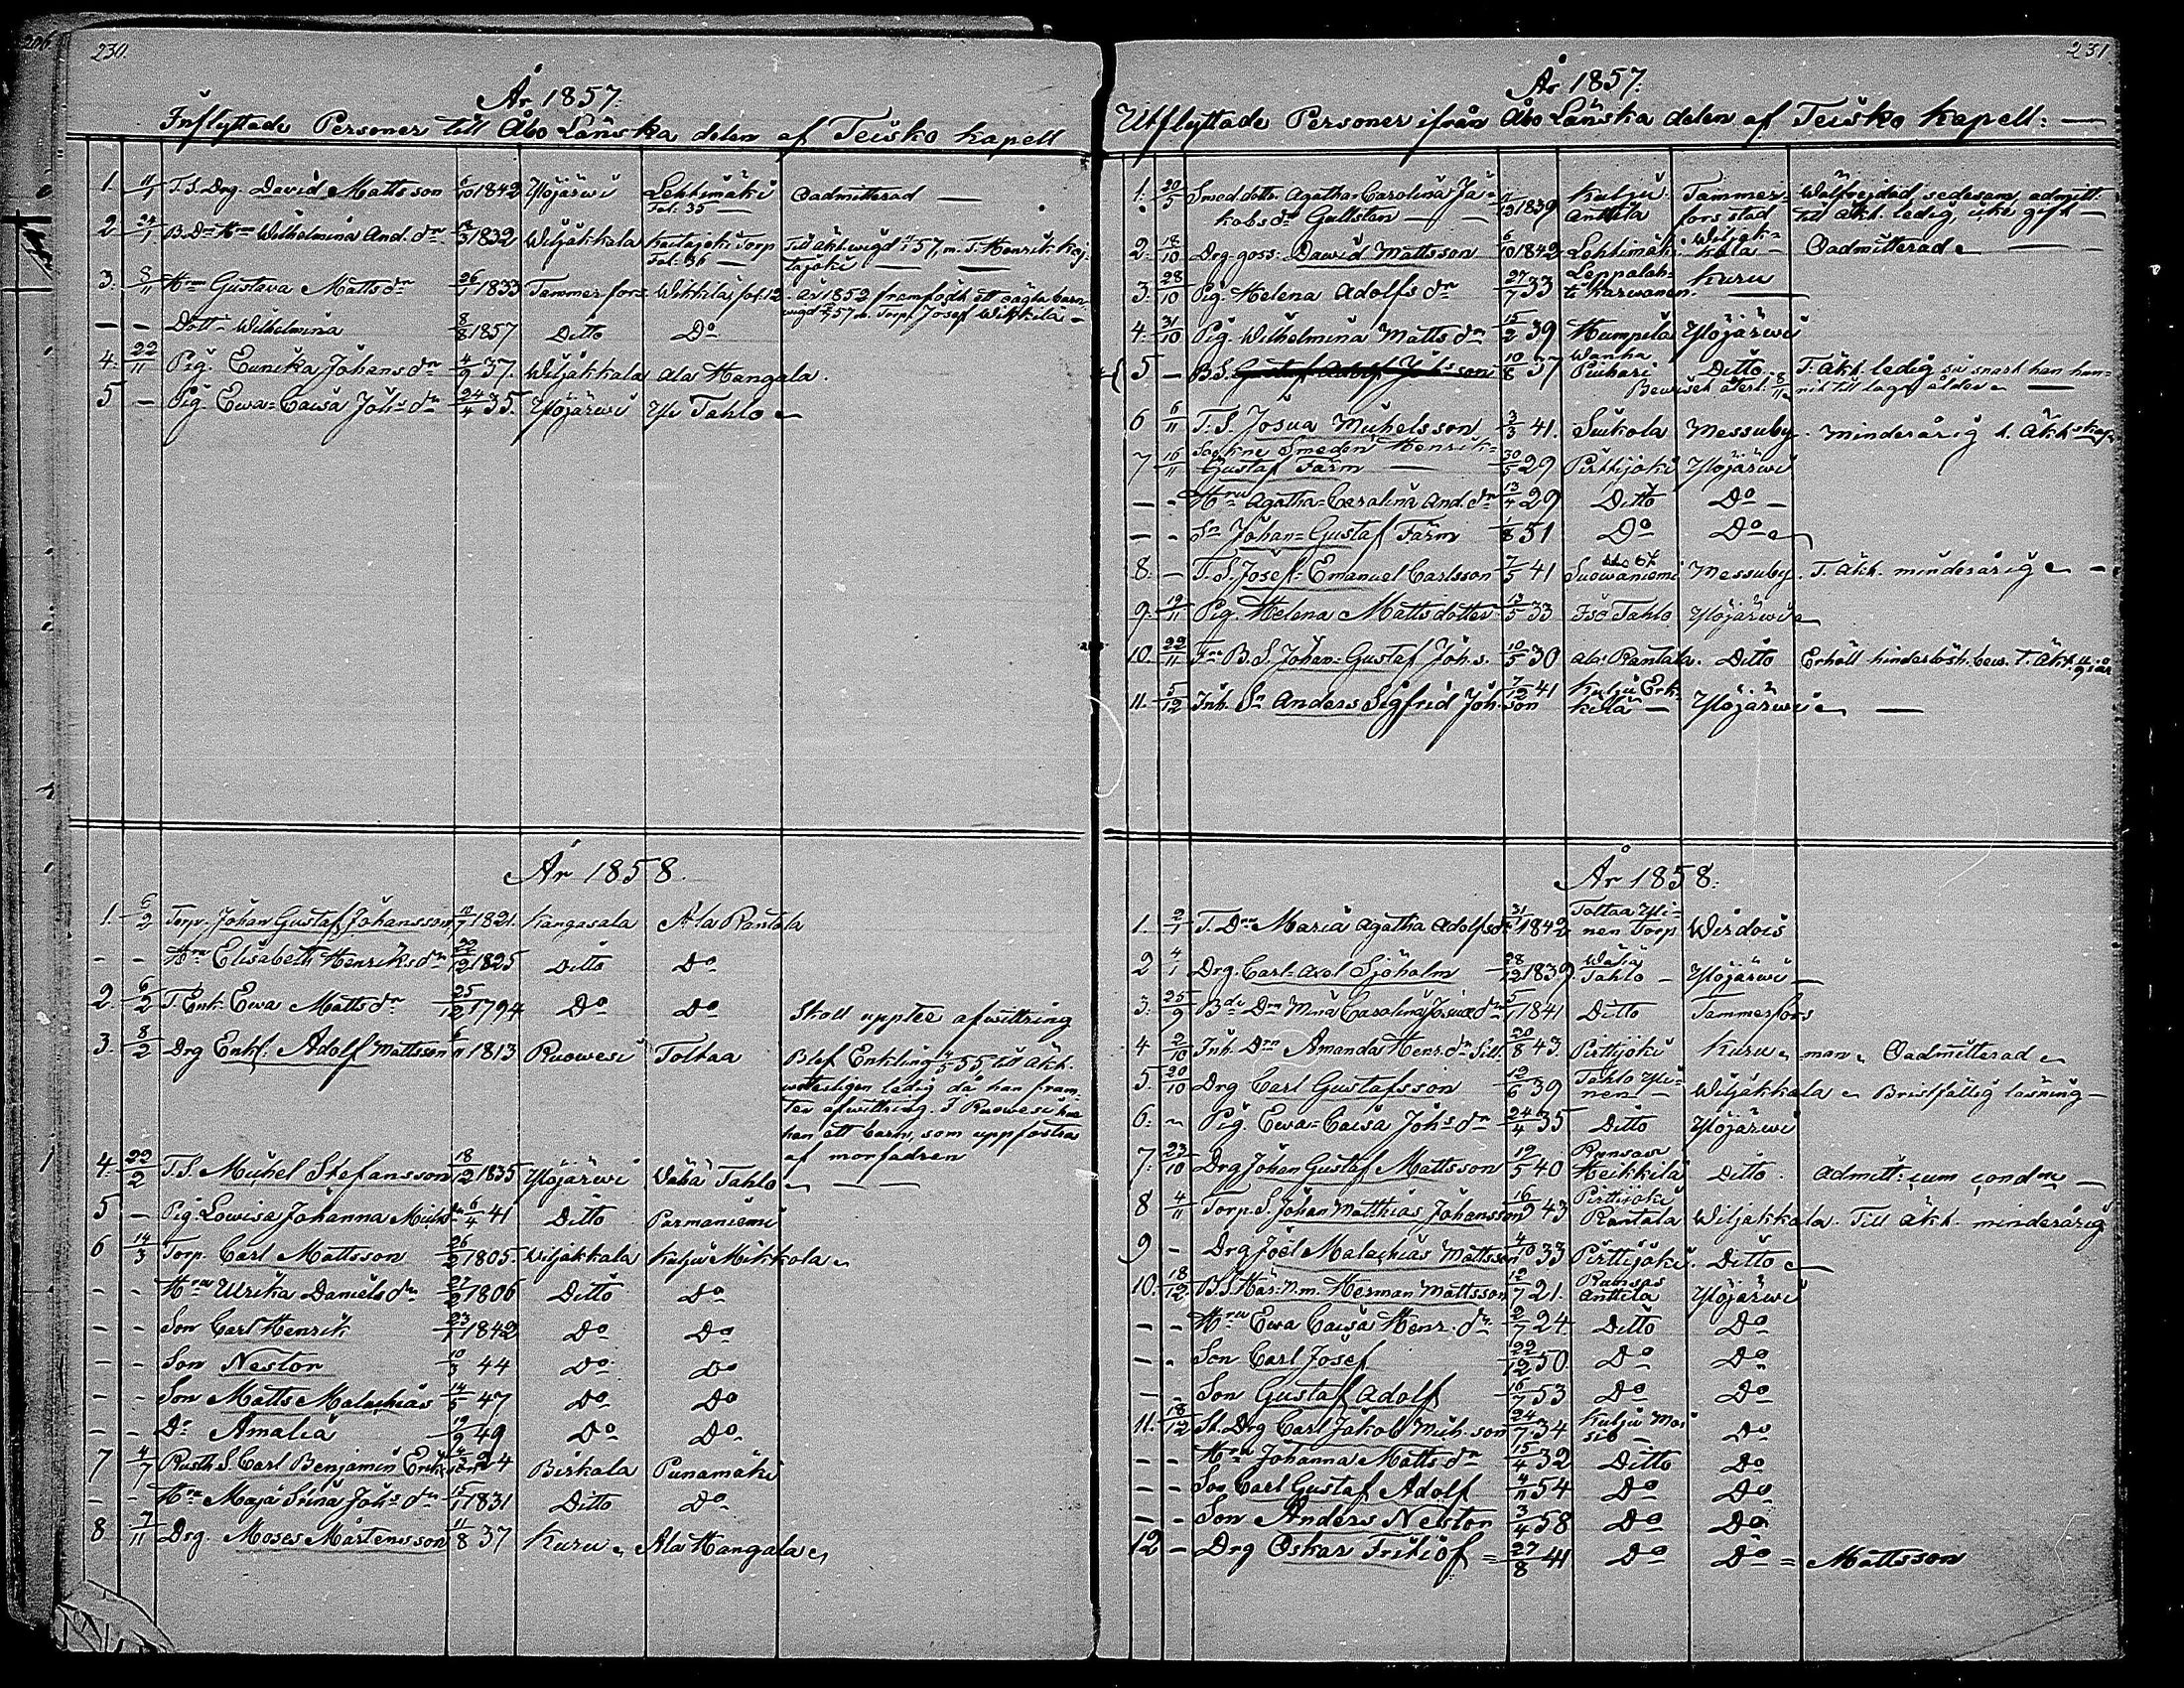 230.
År 1857.
Inflyttade Personer till Åbo Länska delen af Teisko kapell
1. 11/1 T.S. Drg. David Mattsson 6/10 1842 Ylöjärwi Lehtimäki Oadmitterad —
Fol: 35 —
2 24/1 B.Dr Hru Wilhelmina And. dr 1832 Wiljakkala Torp Till äkt. wigd 57, m. T. Henrik
Fol: 36 —
3. 8/11 Hru Gustava Matts dr 26/1 1833 Tammerfors Wikkilä fol. 12. år 1852 framfödt ett oägta barn
wigd 57 m. Torp. Josef Wikkilä —
— — Dott. Wilhelmina 8/8 1857 Ditto Do
4. 22/11 Pig. Eunika Johans dr 4/9 37. Wiljakkala Ala Hangala.
5 — Pig. Ewa-Caisa Johs dr 24/4 35. Ylöjärwi Yli Tahlo
År 1858.
1. 6/2 Torp. Johan Gustaf Johansson 1821. Kangasala Ala Rantala
— — Hru Elisabeth Henriks dr 22/12 1825 Ditto Do
2. 6/2 T. Enk. Ewa Matts dr 25/12 1794 Do Do
Skall upptee afwittring
3. 8/2 Drg Enkl. Adolf Mattsson 6/11 1813 Ruowesi Toltaa Blef Enkling 55, till äkt.
ledig då han fram-
ter afwittring. I Ruowesi har
han ett barn, som uppfostras
af morfadren
4. 22/2 T.S. Michel Stefansson 18/12 1835 Ylöjärwi Wähä Tahlo — —
5 — Pig. Lowisa Johanna Michsdr 6/4 41 Ditto Parmaniemi
6 14/3 Torp. Carl Mattsson 26/2 1805. Wiljakkala Kulju Mikkola
— — Hru Ulrika Daniels dr 27/2 1806 Ditto Do
— — Son Carl Henrik 23/1 1842 Do Do
— — Son Nestor 10/3 44 Do Do
— — Son Matts Malachias 14/5 47 Do Do
— — Dr Amalia 19/9 49 Do Do
7 4/7 Rusth. S. Carl Benjamin Eriksson 24 Birkala Punamäki
— — Hru Maja Stina Johs dr 15/1 1831 Ditto Do
8 7/11 Drg. Moses Mårtensson 11/8 37 Kuru Ala Hangala
231.
År 1857.
Utflyttade Personer ifrån Åbo Länska delen af Teisko Kapell: —
1. 20/5 Smed. dotter Agatha Carolina Ja- 1839 Kulju Tammer- Wälfrejdad, sedesam, admitt.
kobs dr Gullsten — — Anttila fors stad till äkt. ledig, icke gift —
2. 18/10 Drg. goss. Dawid Mattsson 6/10 1842 Lehtimäki Wiljak-
kala — Oadmitterad —
3. 28/10 Pig. Helena Adolfs dr 27/7 33 Leppalah-
ti Karwanen. Kuru —
4. 31/10 Pig. Wilhelmina Matts dr 15/2 39 Humpila Ylöjärwi
5 — B.S. Gustaf Adolf Johsson 10/8 37 Wanha
Piuhari Ditto T. äkt. ledig så snart han hun-
Beviset återl. 8/11 nit till laga ålder —
6 6/11 T.S. Josua Michelsson 3/3 41. Siukola Messuby. minderårig t. äktskap
7 16/11 Sockne Smeden Henrik
Gustaf Färm — 30/5 29 Pirttijoki Ylöjärwi
— — Hru Agatha-Carolina And. dr 13/4 29 Ditto Do —
— — Sn Johan-Gustaf Färm 1/8 51 Do Do
8. — T.S. Josef-Emanuel Carlsson 7/5 41 Suowaniemi Messuby. T. äkt. minderårig —
9. 19/11 Pig. Helena Mattsdotter 13/5 33 Iso Tahlo Ylöjärwi
10. 22/11 B.S. Johan-Gustaf Joh.s. 10/5 30 Ala Rantala. Ditto Erhöll hinderlösh. bew. t. äkt.
11. 5/12 Inh. Sn Anders Sigfrid Joh.son 7/12 41 Kulju Erk-
kilä — Ylöjärwi —
År 1858.
1. 2/1 T. Dr Maria Agatha Adolfsdr 31 1842 Toltaa Yli-
nen torp Wirdois
2 4/1 Drg. Carl-Axel Sjöholm 28/12 1839. Wähä
Tahlo — Ylöjärwi —
3. 25/9 Dr Mina Carolina Josuæ dr 1841 Ditto Tammerfors
4 2/10 Inh. Dr Amanda Henr. dr Sill- 20/8 43. Pirttijoki Kuru man Oadmitterad
5. 20/10 Drg Carl Gustafsson 12/6 39 Tahlo Yli-
nen — Wiljakkala Bristfällig läsning —
6. — Pig. Ewa-Caisa Johs dr 24/4 35 Ditto Ylöjärwi
7. 23/10 Drg Johan Gustaf Mattsson 19/5 40 Ramsas
Heikkilä Ditto. admitt: cum cond.
8 4/11 Torp. S. Johan Matthias Johansson 16/9 43 Pirttijoki
Rantala Wiljakkala. Till äkt. minderårig
9 — Drg Joel Malachias Mattsson 4/10 33 Pirttijoki. Ditto —
10. 18/12 B.S. Herman Mattsson 12/7 21. Ramsas
Anttila Ylöjärwi
— — Hru Ewa Caisa Henr. dr 2/7 24. Ditto Do
— — Son Carl Josef 22/12 50 Do Do
— — Son Gustaf Adolf 16/7 53 Do Do
11. 18/12 St. Drg Carl Jakob Mich.son 24/7 34 Kulju Mai-
sio — Do
— — Hru Johanna Matts dr 15/4 32 Ditto Do
— — Son Carl Gustaf Adolf 4/11 54 Do Do
— — Son Anders Nestor 3/4 58 Do Do
12 — Drg Oskar Fritiof = 27/8 41 Do Do = Mattsson